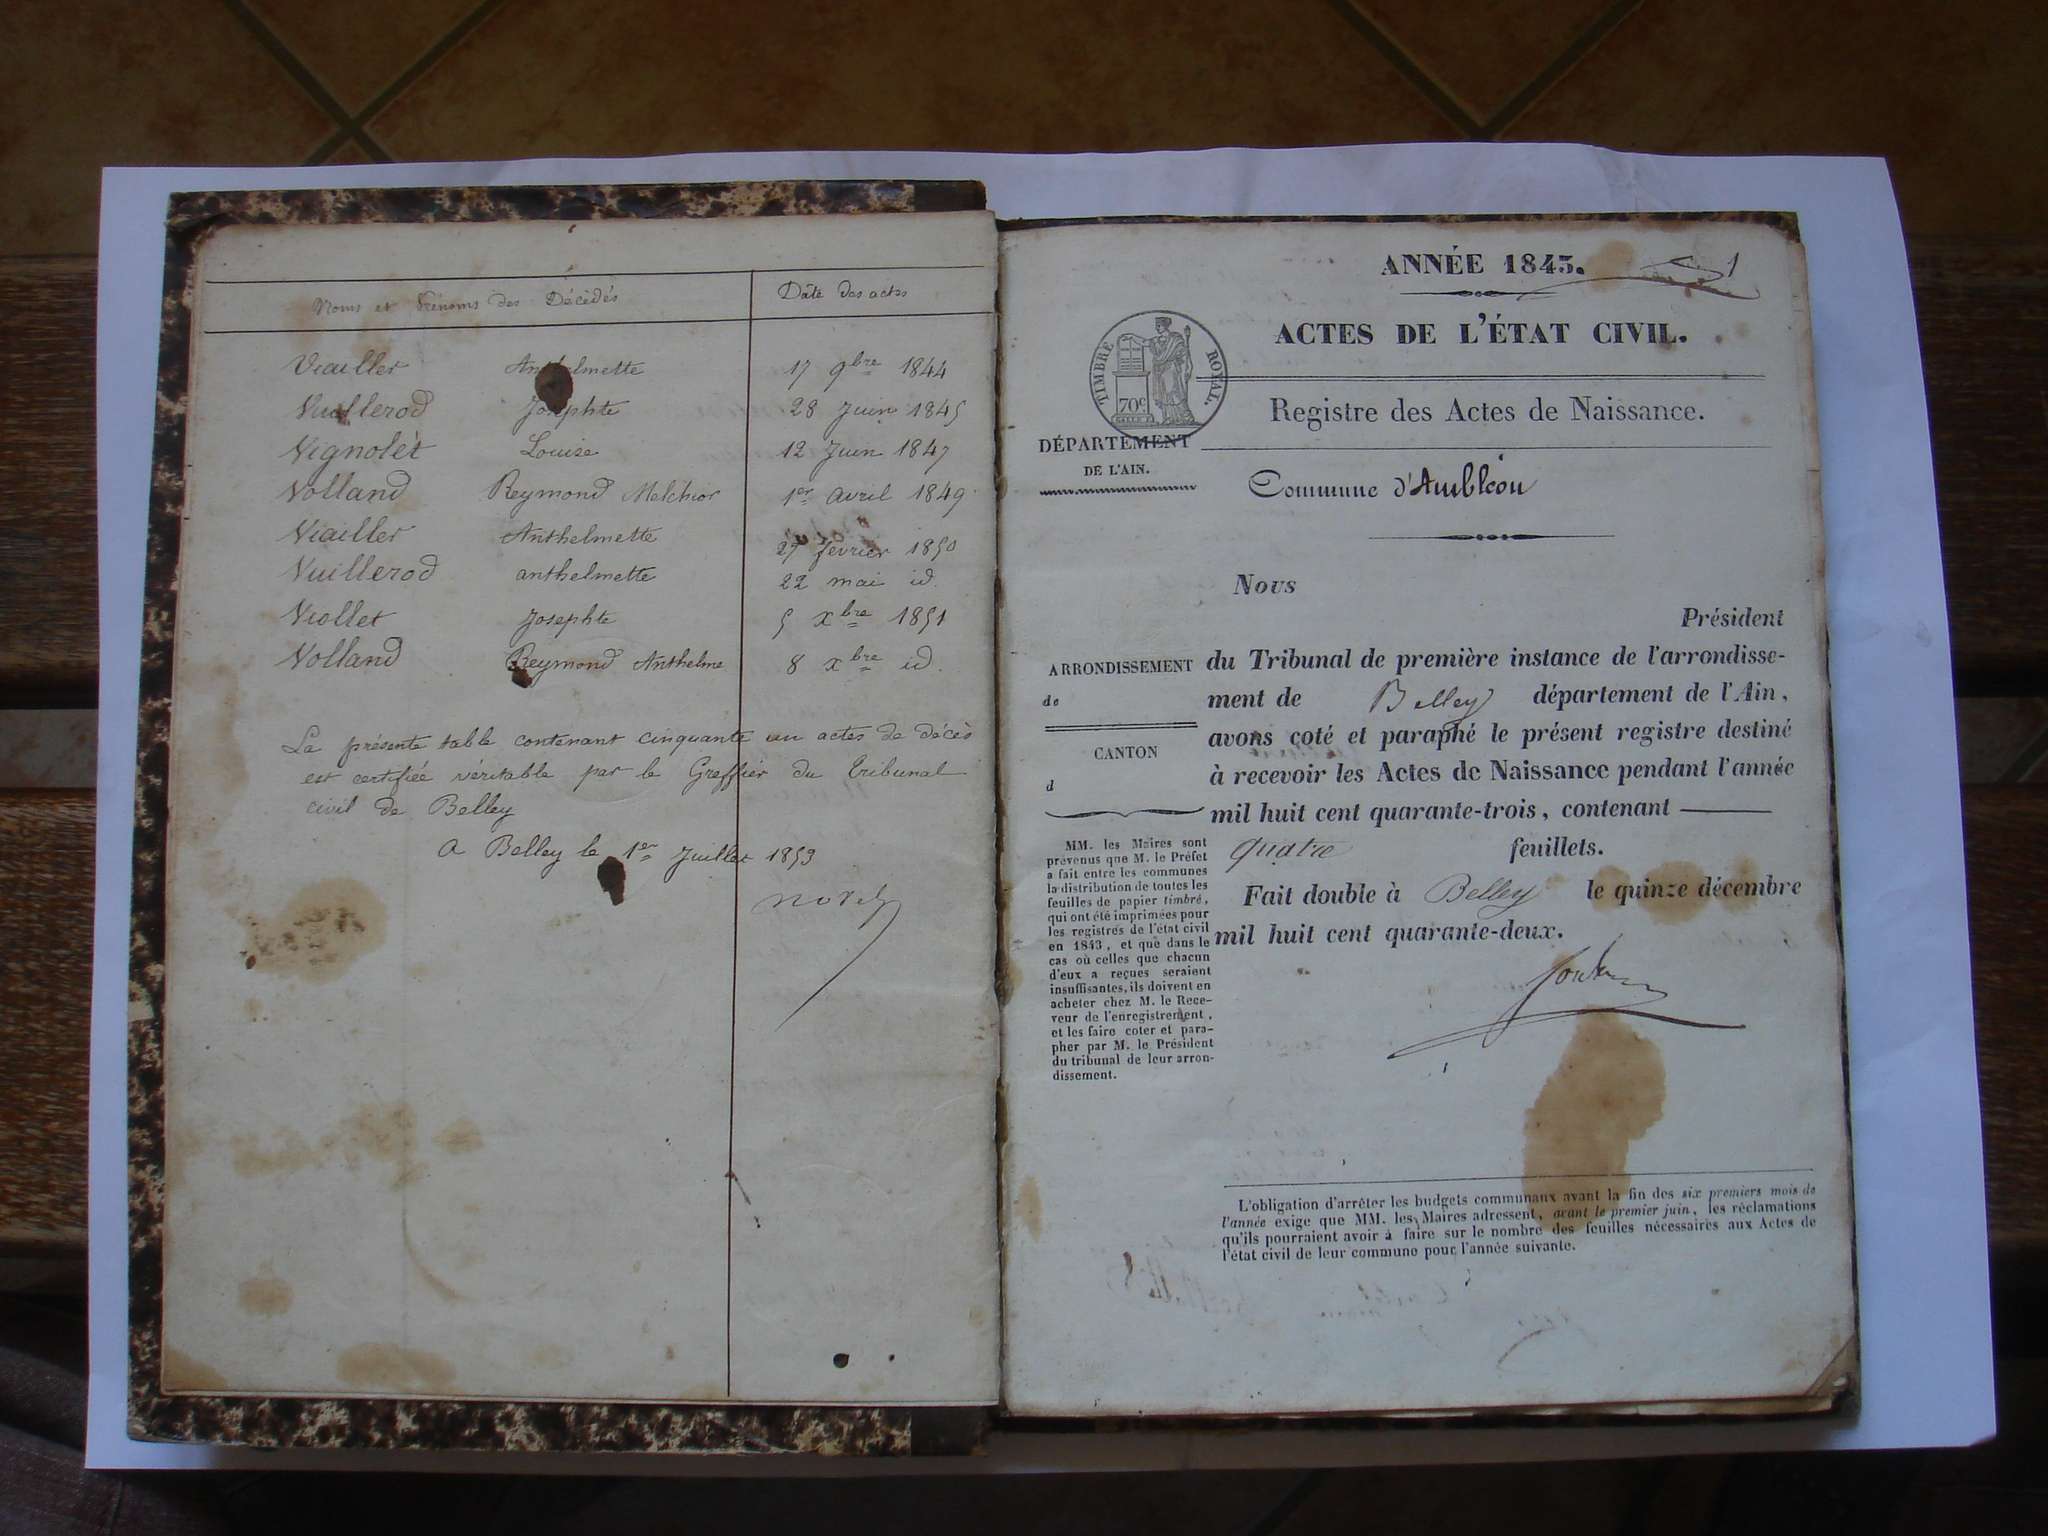 Noms et Prénoms des Décédés
Date des actes
Viailler Anthelmette 17 9bre 1844
Vuillerod Josephte 28 Juin 1845
Vignolet Louise 12 Juin 1847
Volland Reymond Melchior 1er avril 1849
Viailler Anthelmette 27 fevrier 1850
Vuillerod anthelmette 22 mai id.
Viollet Josephte 5 xbre 1851
Volland Reymond Anthelme 8 xbre id.
La présente table contenant cinquante un actes de décès
est certifiée véritable par le Greffier du Tribunal
civil de Belley
A Belley le 1er Juillet 1853
ANNÉE 1843.
1
ACTES DE L'ÉTAT CIVIL.
TIMBRE ROYAL.
70c
Registre des Actes de Naissance.
DÉPARTEMENT
DE L'AIN.
Commune d'Ambléon
Nous
Président
ARRONDISSEMENT
de
du Tribunal de première instance de l'arrondisse-
ment de Belley département de l'Ain,
avons coté et paraphé le présent registre destiné
CANTON
d
à recevoir les Actes de Naissance pendant l'année
mil huit cent quarante-trois, contenant
quatre feuillets.
Fait double à Belley le quinze décembre
mil huit cent quarante-deux.
MM. les Maires sont
prévenus que M. le Préfet
a fait entre les communes
la distribution de toutes les
feuilles de papier timbré,
qui ont été imprimées pour
les registres de l'état civil
en 1843, et que dans le
cas où celles que chacun
d'eux a reçues seraient
insuffisantes, ils doivent en
acheter chez M. le Rece-
veur de l'enregistrement,
et les faire coter et para-
pher par M. le Président
du tribunal de leur arron-
dissement.
L'obligation d'arrêter les budgets communaux avant la fin des six premiers mois de
l'année exige que MM. les Maires adressent, avant le premier juin, les réclamations
qu'ils pourraient avoir à faire sur le nombre des feuilles nécessaires aux Actes de
l'état civil de leur commune pour l'année suivante.